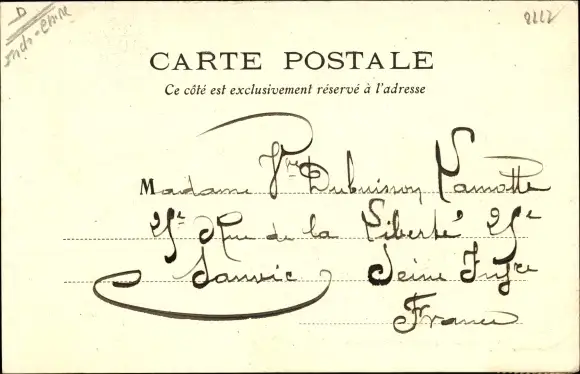 D
Indo-Chine
2222
CARTE POSTALE
Ce côté est exclusivement réservé à l'adresse
Madame Vve Dubuisson Lamotte
Rue de la Liberté
Sanvic Seine Infre
France